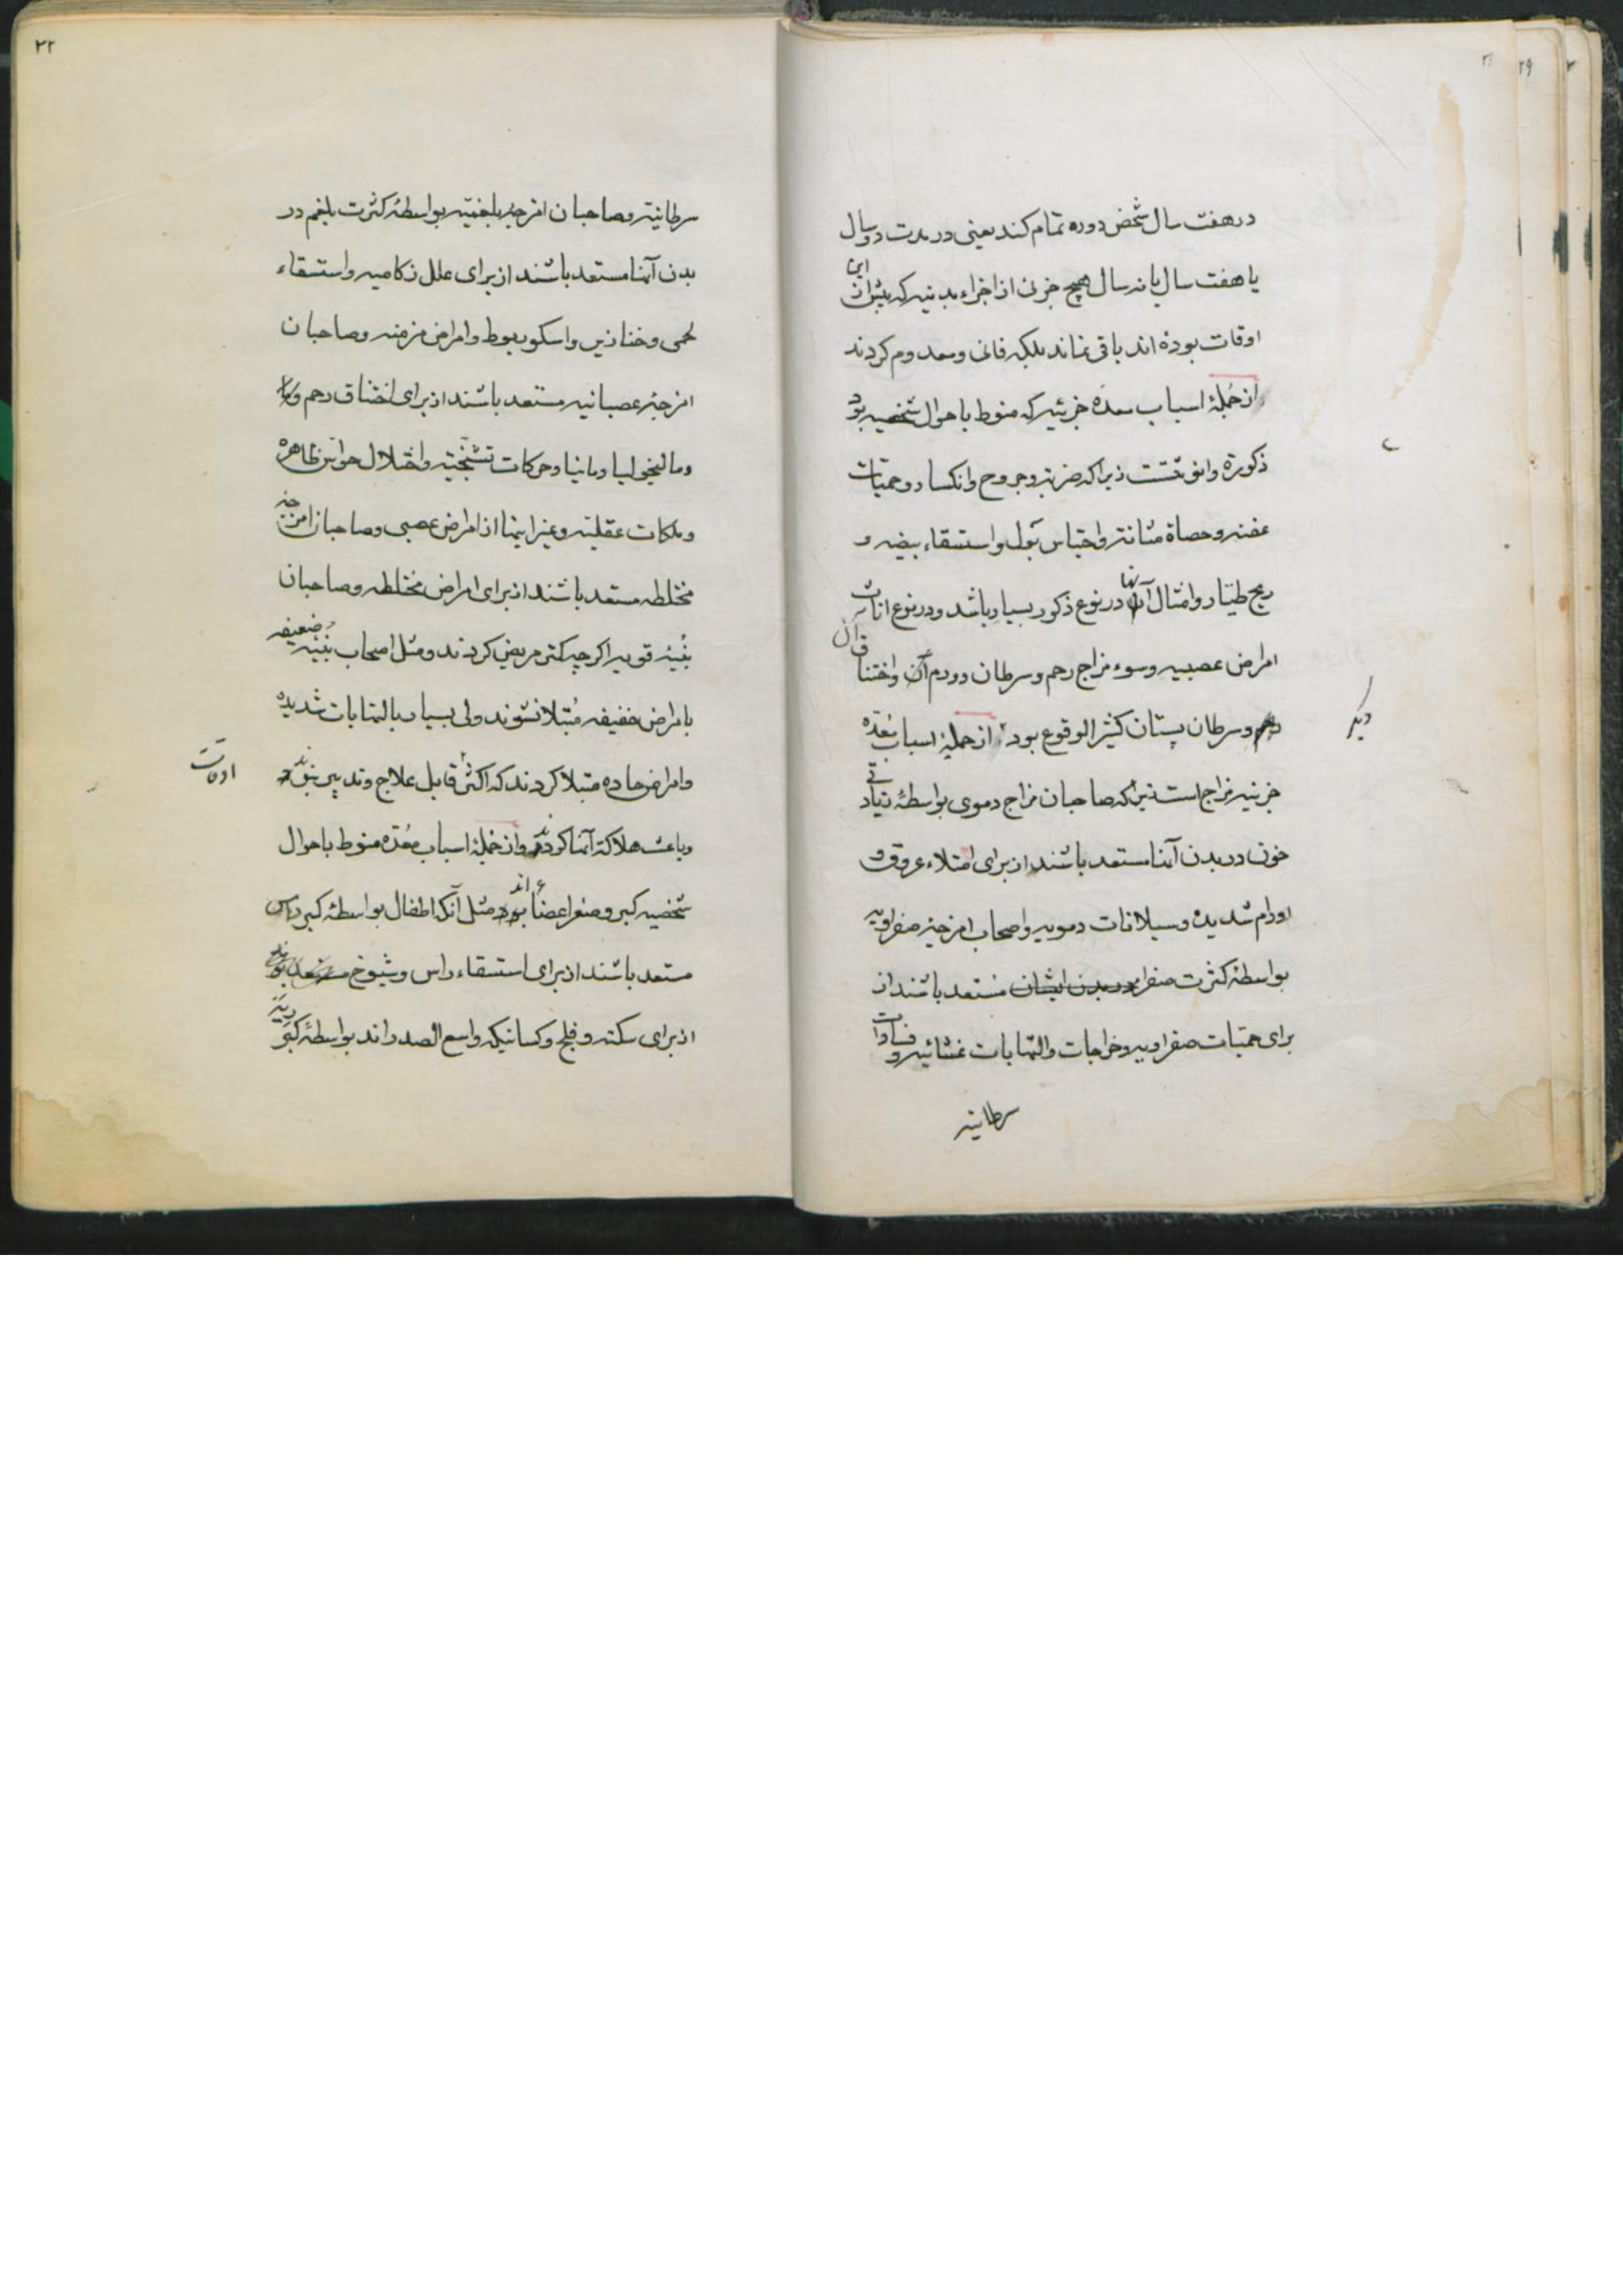 ۲۱
در هفت سال شخص دوره تمام کند یعنی در مدت دو سال
یا هفت سال یا نه سال هیچ جزئی از اجزاء بدنیه که پیش از این
اوقات بوده اند باقی نماند بلکه فانی و معدوم کردند
از جملهٔ اسباب معدهٔ جزئیه که منوط باحوال شخصیه بود
ذکورة وانوثتست زیرا که ضربه وجروح وانکسار وحمیّات
عفنه وحصاة مثانه واحتباس بول واستسقاء بیضه و
ریح طیّار وامثال آنها در نوع ذکور بسیار باشد و در نوع اناث
امراض عصبیه وسوء مزاج رحم وسرطان و ورم آن واختناق آن
وسرطان پستان کثیر الوقوع بود از جملهٔ اسباب معدّه
دیگر
جزئیه مزاج است زیرا که صاحبان مزاج دموی بواسطهٔ زیادتی
خون در بدن آنها مستعد باشند از برای امتلاء عروق و
اورام شدیده وسیلانات دمویه واصحاب امزجهٔ صفراویه
بواسطهٔ کثرت صفرا در بدن ایشان مستعد باشند از
برای حمیّات صفراویه وخراجات والتهابات غشائیه و فسادات
سرطانیة
۲۲
سرطانیة وصاحبان امزجهٔ بلغمیّه بواسطهٔ کثرت بلغم در
بدن آنها مستعد باشند از برای علل زکامیه واستسقاء
لحمی وخنازیر واسکوربوط وامراض مزمنه وصاحبان
امزجهٔ عصبانیه مستعد باشند از برای اختناق رحم
ومالیخولیا ومانیا وحرکات تشنّجیّه واختلال حواس ظاهره
وملکات عقلیّه وغیر اینها از امراض عصبی وصاحبان امزجهٔ
مختلطه مستعد باشند از برای امراض مختلطه وصاحبان
بنیهٔ قویه اگرچه کمتر مریض کردند ومثل اصحاب بنیهٔ ضعیفه
بامراض خفیفه مبتلا نشوند ولی بسیار بالتهابات شدیده
وامراض حاده مبتلا کردند که اکثر اوقات قابل علاج وتدبیر نبوند
وباعث هلاکة آنها کردند واز جملهٔ اسباب معدّه منوط باحوال
شخصیه کبر وصغر اعضاء اند مثل آنکه اطفال بواسطهٔ کبر راس
مستعد باشند از برای استسقاء راس وشیوخ
از برای سکته وفلج وکسانیکه واسع الصدراند بواسطهٔ کبر ریه